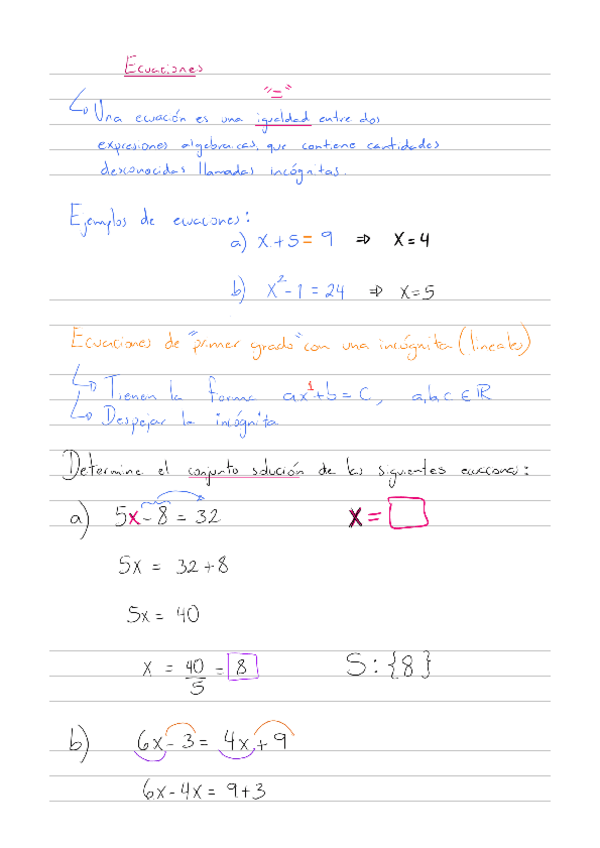 Ecuaciones
"="
Una ecuación es una igualdad entre dos
expresiones algebraicas, que contiene cantidades
desconocidas llamadas incógnitas.
Ejemplos de ecuaciones:
a) x + 5 = 9 ⇒ x = 4
b) x² - 1 = 24 ⇒ x = 5
Ecuaciones de "primer grado" con una incógnita (lineales)
Tienen la forma ax¹ + b = c, a,b,c ∈ ℝ
Despejar la incógnita
Determine el conjunto solución de las siguientes ecuaciones:
a) 5x - 8 = 32 x =
5x = 32 + 8
5x = 40
x = 40/5 = 8 S: {8}
b) 6x - 3 = 4x + 9
6x - 4x = 9 + 3